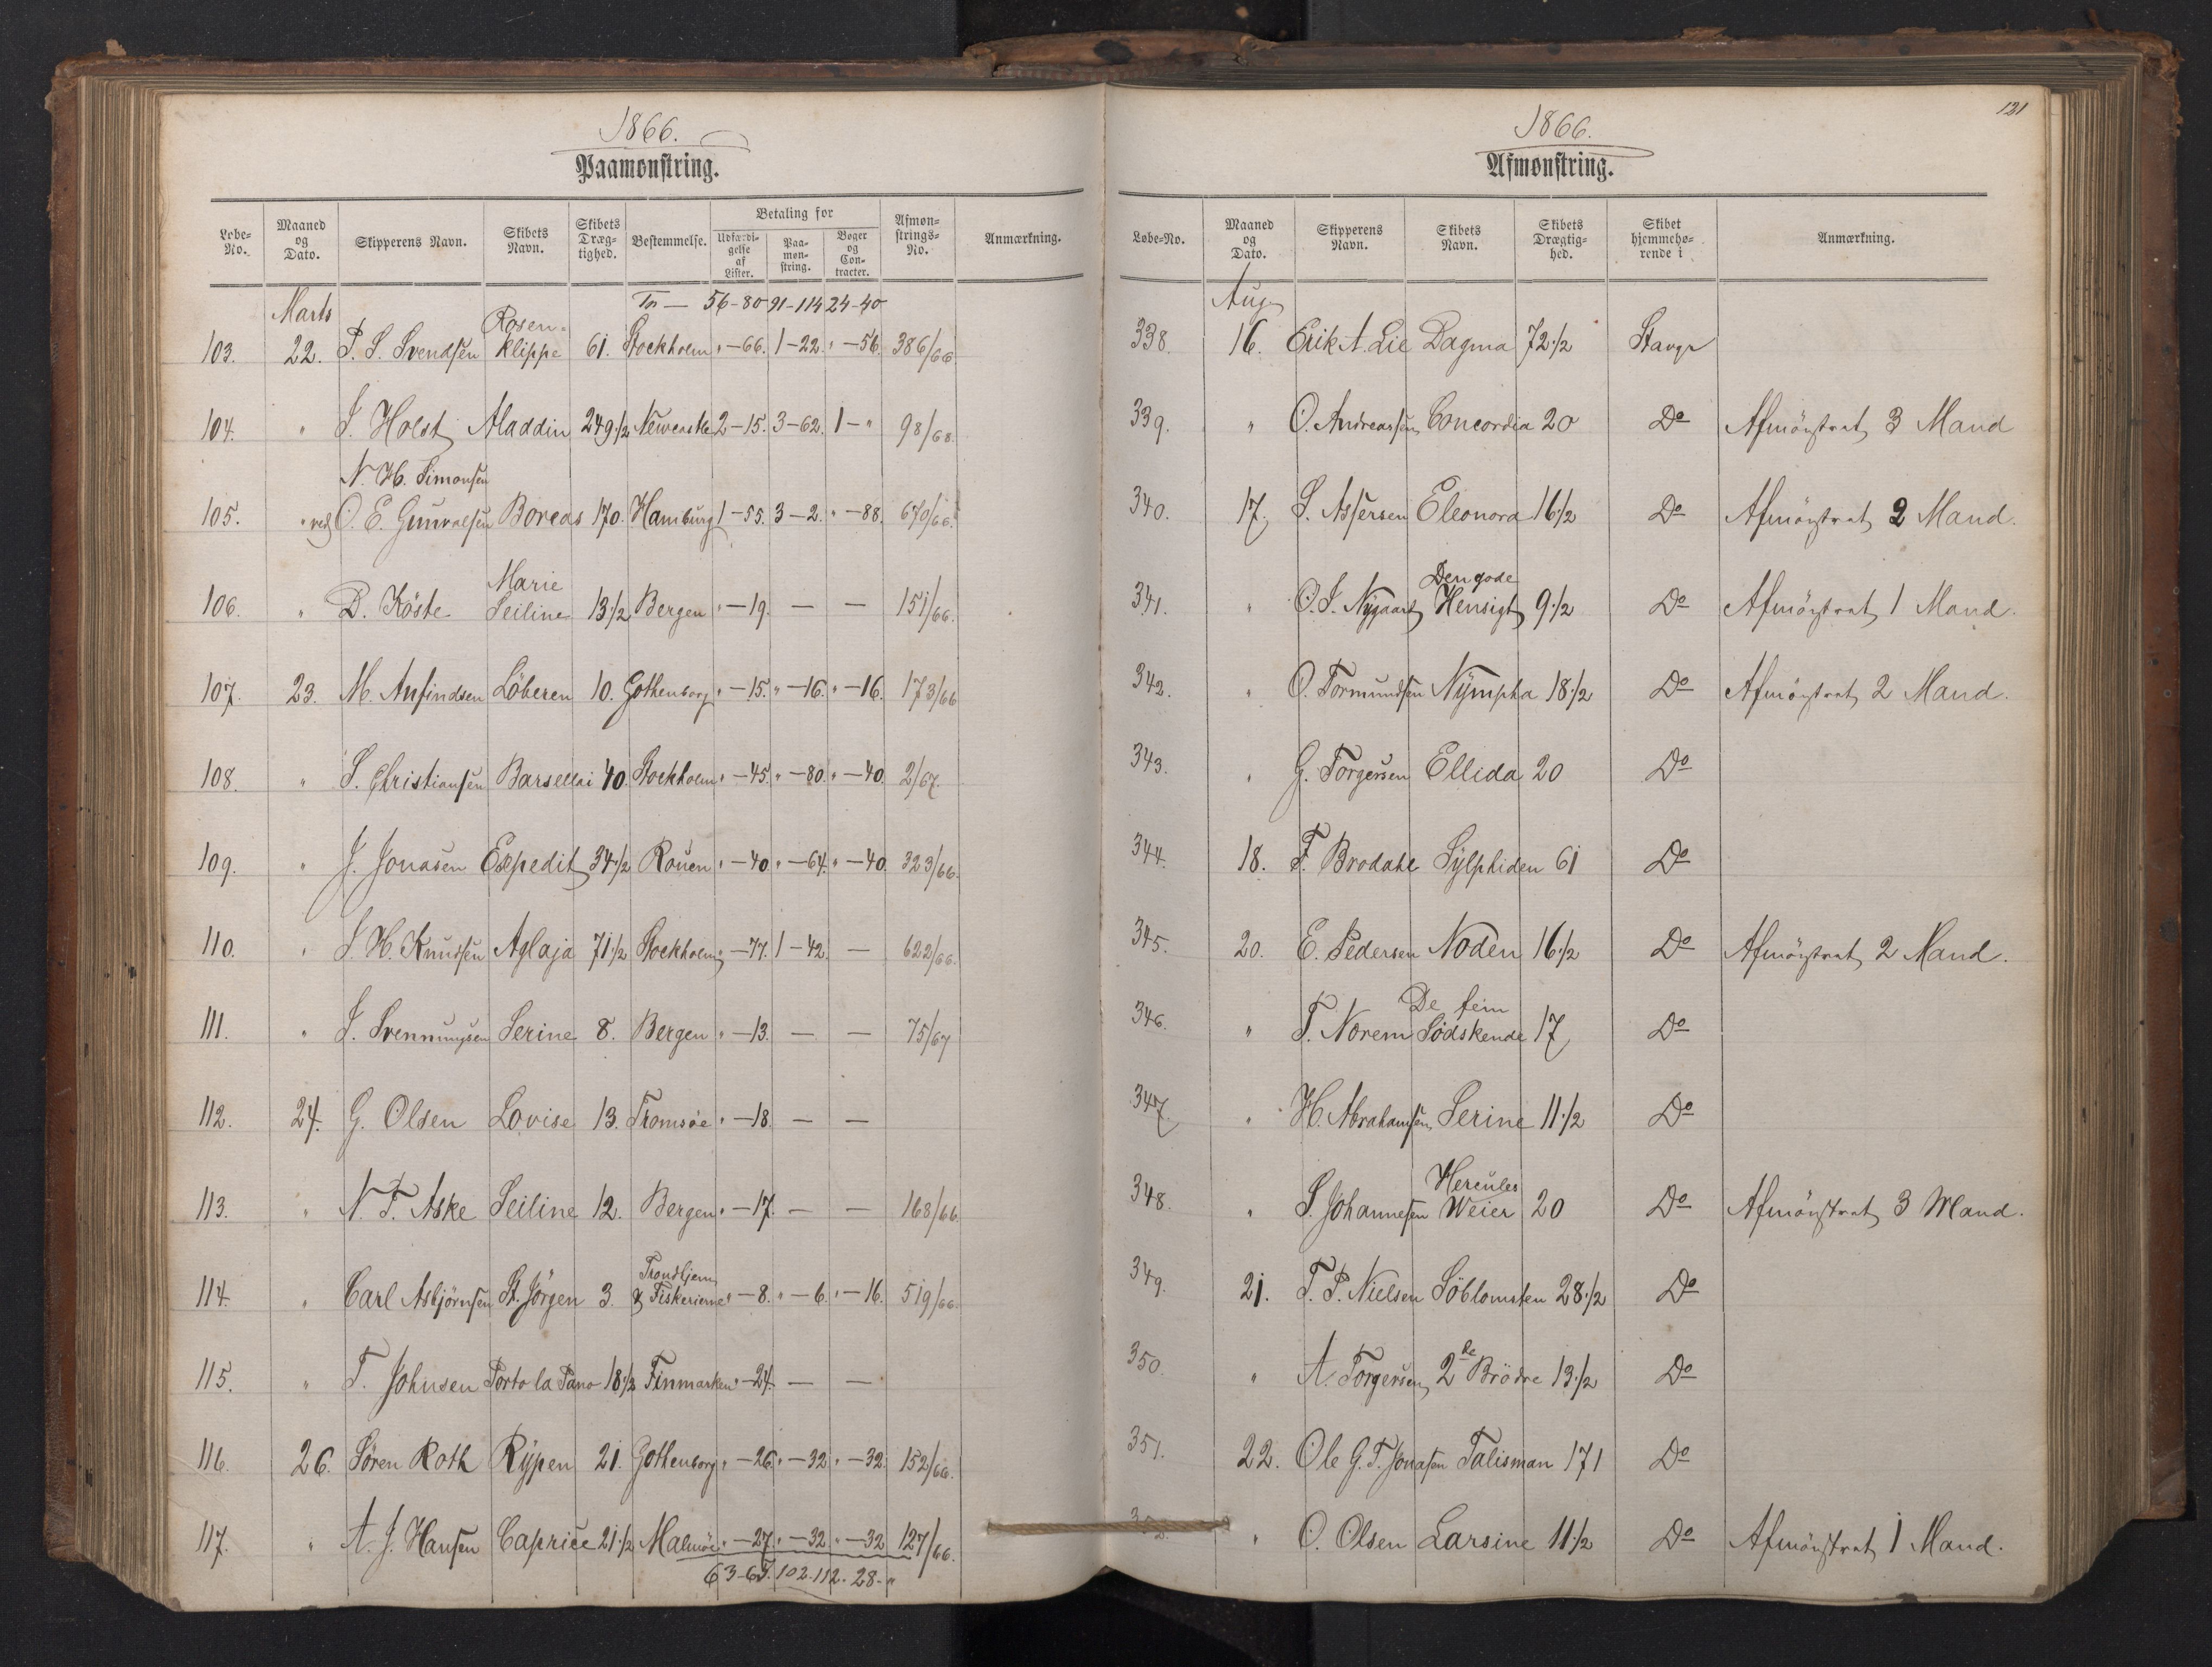 1866.
Paamønstring.
Løbe-No. | Maaned og Dato. | Skipperens Navn. | Skibets Navn. | Skibets Dræg-tighed. | Bestemmelse. | Betaling for Udfærdi-gelse af Lister. | Paa-møn-string. | Bøger og Con-tracter. | Afmøn-strings-No. | Anmærkning.
Marts Tr — 56-80 91-114 24-40
103. 22. P. S. Svendsen Rosen-klippe 61. Stockholm " -66. 1-22. " -56. 386/66
104. " J. Holst Aladdin 249 1/2 Newcastle 2-15. 3-62. 1-" 98/68.
N. H. Simonsen
105. " ved O. E. Gunvalsen Boreas 170. Hamburg 1-55. 3-2. " -88. 670/66.
106. " D. Köste Marie Seiline 13 1/2 Bergen " -19. — — 151/66.
107. 23. M. Anfindsen Löberen 10. Gothenborg " -15. " -16. " -16. 173/66
108. " S. Christiansen Barsellai 40. Stockholm " -45. " -80. " -40. 2/67.
109. " J. Jonasen Expedit 34 1/2 Rouen " -40. " -64. " -40. 323/66.
110. " J. H. Knudsen Aglaja 71 1/2 Stockholm " -77. 1-42. — 622/66.
111. " J. Svennungsen Serine 8. Bergen " -13. — — 75/67
112. 24. G. Olsen Lovise 13. Tromsöe " -18. — —
113. " N. T. Aske Seiline 12. Bergen " -17. — — 168/66.
114. " Carl Asbjörnsen St. Jörgen 3. Trondhjem & Fiskerierne " -8. " -6. " -16. 519/66.
115. " T. Johnsen Porto la Pano 18 1/2 Finmarken " -24. — —
116. 26. Sören Roth Rypen 21. Gothenborg " -26. " -32. " -32. 152/66.
117. " A. J. Hansen Caprice 21 1/2 Malmöe " -27. " -32. " -32 127/66.
63-65. 102.112. 28-"
121
1866.
Afmønstring.
Løbe-No. | Maaned og Dato. | Skipperens Navn. | Skibets Navn. | Skibets Drægtig-hed. | Skibet hjemmehø-rende i | Anmærkning.
Aug
338. 16. Erik A. Lie Dagma 72 1/2 Stavgr
339. " O. Andreassen Concordia 20 Do Afmönstret 3 Mand
340. 17. S. Assersen Eleonora 16 1/2 Do Afmönstret 2 Mand.
341. " O. J. Nygaard Den gode Hensigt 9 1/2 Do Afmönstret 1 Mand.
342. " O. Tormundsen Nympha 18 1/2 Do Afmönstret 2 Mand.
343. " G. Torgersen Ellida 20 Do
344. 18. F. Brodahl Sylphiden 61 Do
345. 20. E. Pedersen Noden 16 1/2 Do Afmönstret 2 Mand.
346. " T. Norem De fem Södskende 17 Do
347. " H. Abrahamsen Serine 11 1/2 Do
348. " S. Johannesen Hercules Weier 20 Do Afmönstret 3 Mand.
349. 21. T. P. Nielsen Söblomsten 28 1/2 Do
350. " A. Torgersen 2de Brödre 13 1/2 Do
351. 22. Ole G. T. Jonasen Talisman 171 Do
352. " O. Olsen Larsine 11 1/2 Do Afmönstret 1 Mand.